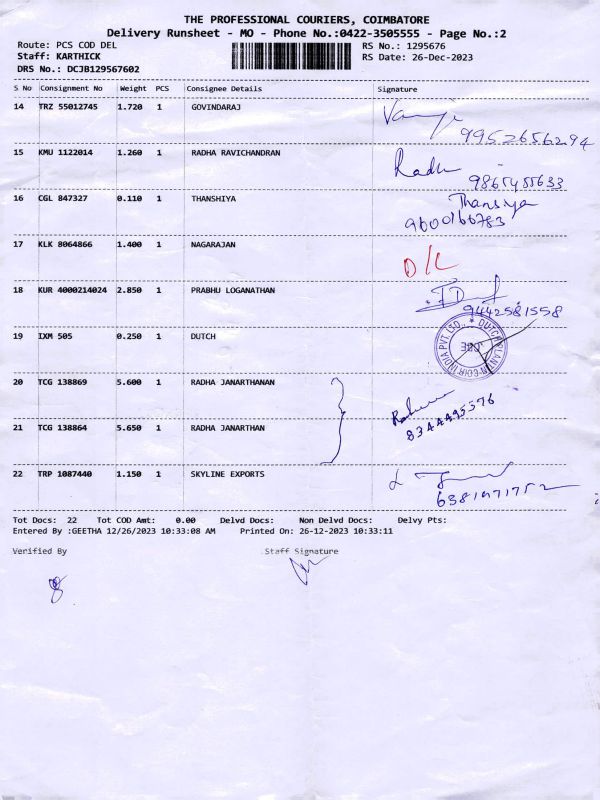 THE PROFESSIONAL COURIERS, COIMBATORE
Delivery Runsheet - MO - Phone No.:0422-3505555 - Page No.:2
Route: PCS COD DEL RS No.: 1295676
Staff: KARTHICK RS Date: 26-Dec-2023
DRS No.: DCJB129567602
S No Consignment No Weight PCS Consignee Details Signature
14 TRZ 55012745 1.720 1 GOVINDARAJ
9952656294
15 KMU 1122014 1.260 1 RADHA RAVICHANDRAN
Radh
9865455633
16 CGL 847327 0.110 1 THANSHIYA Thansiya
9600166783
17 KLK 8064866 1.400 1 NAGARAJAN
D/L
18 KUR 4000214024 2.850 1 PRABHU LOGANATHAN
9442581558
19 IXM 505 0.250 1 DUTCH
DUTCH PLANTIN COIR INDIA PVT. LTD.,
20 TCG 138869 5.600 1 RADHA JANARTHANAN
8344495576
21 TCG 138864 5.650 1 RADHA JANARTHAN
22 TRP 1087440 1.150 1 SKYLINE EXPORTS
6381971752
Tot Docs: 22 Tot COD Amt: 0.00 Delvd Docs: Non Delvd Docs: Delvy Pts:
Entered By :GEETHA 12/26/2023 10:33:08 AM Printed On: 26-12-2023 10:33:11
Verified By Staff Signature